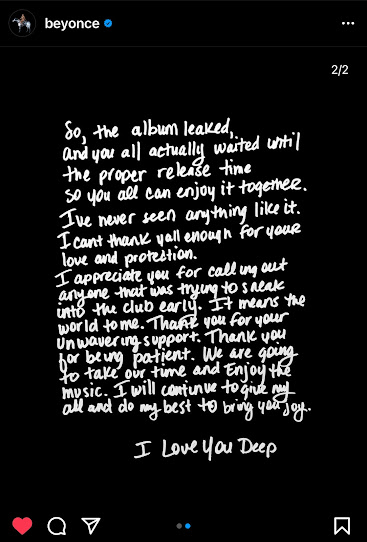 beyonce
2/2
So, the album leaked,
and you all actually waited until
the proper release time
so you all can enjoy it together.
I've never seen anything like it.
I cant thank yall enough for your
love and protection.
I appreciate you for calling out
anyone that was trying to sneak
into the club early. It means the
world to me. Thank you for your
unwavering support. Thank you
for being patient. We are going
to take our time and Enjoy the
music. I will continue to give my
all and do my best to bring you joy.
I Love You Deep